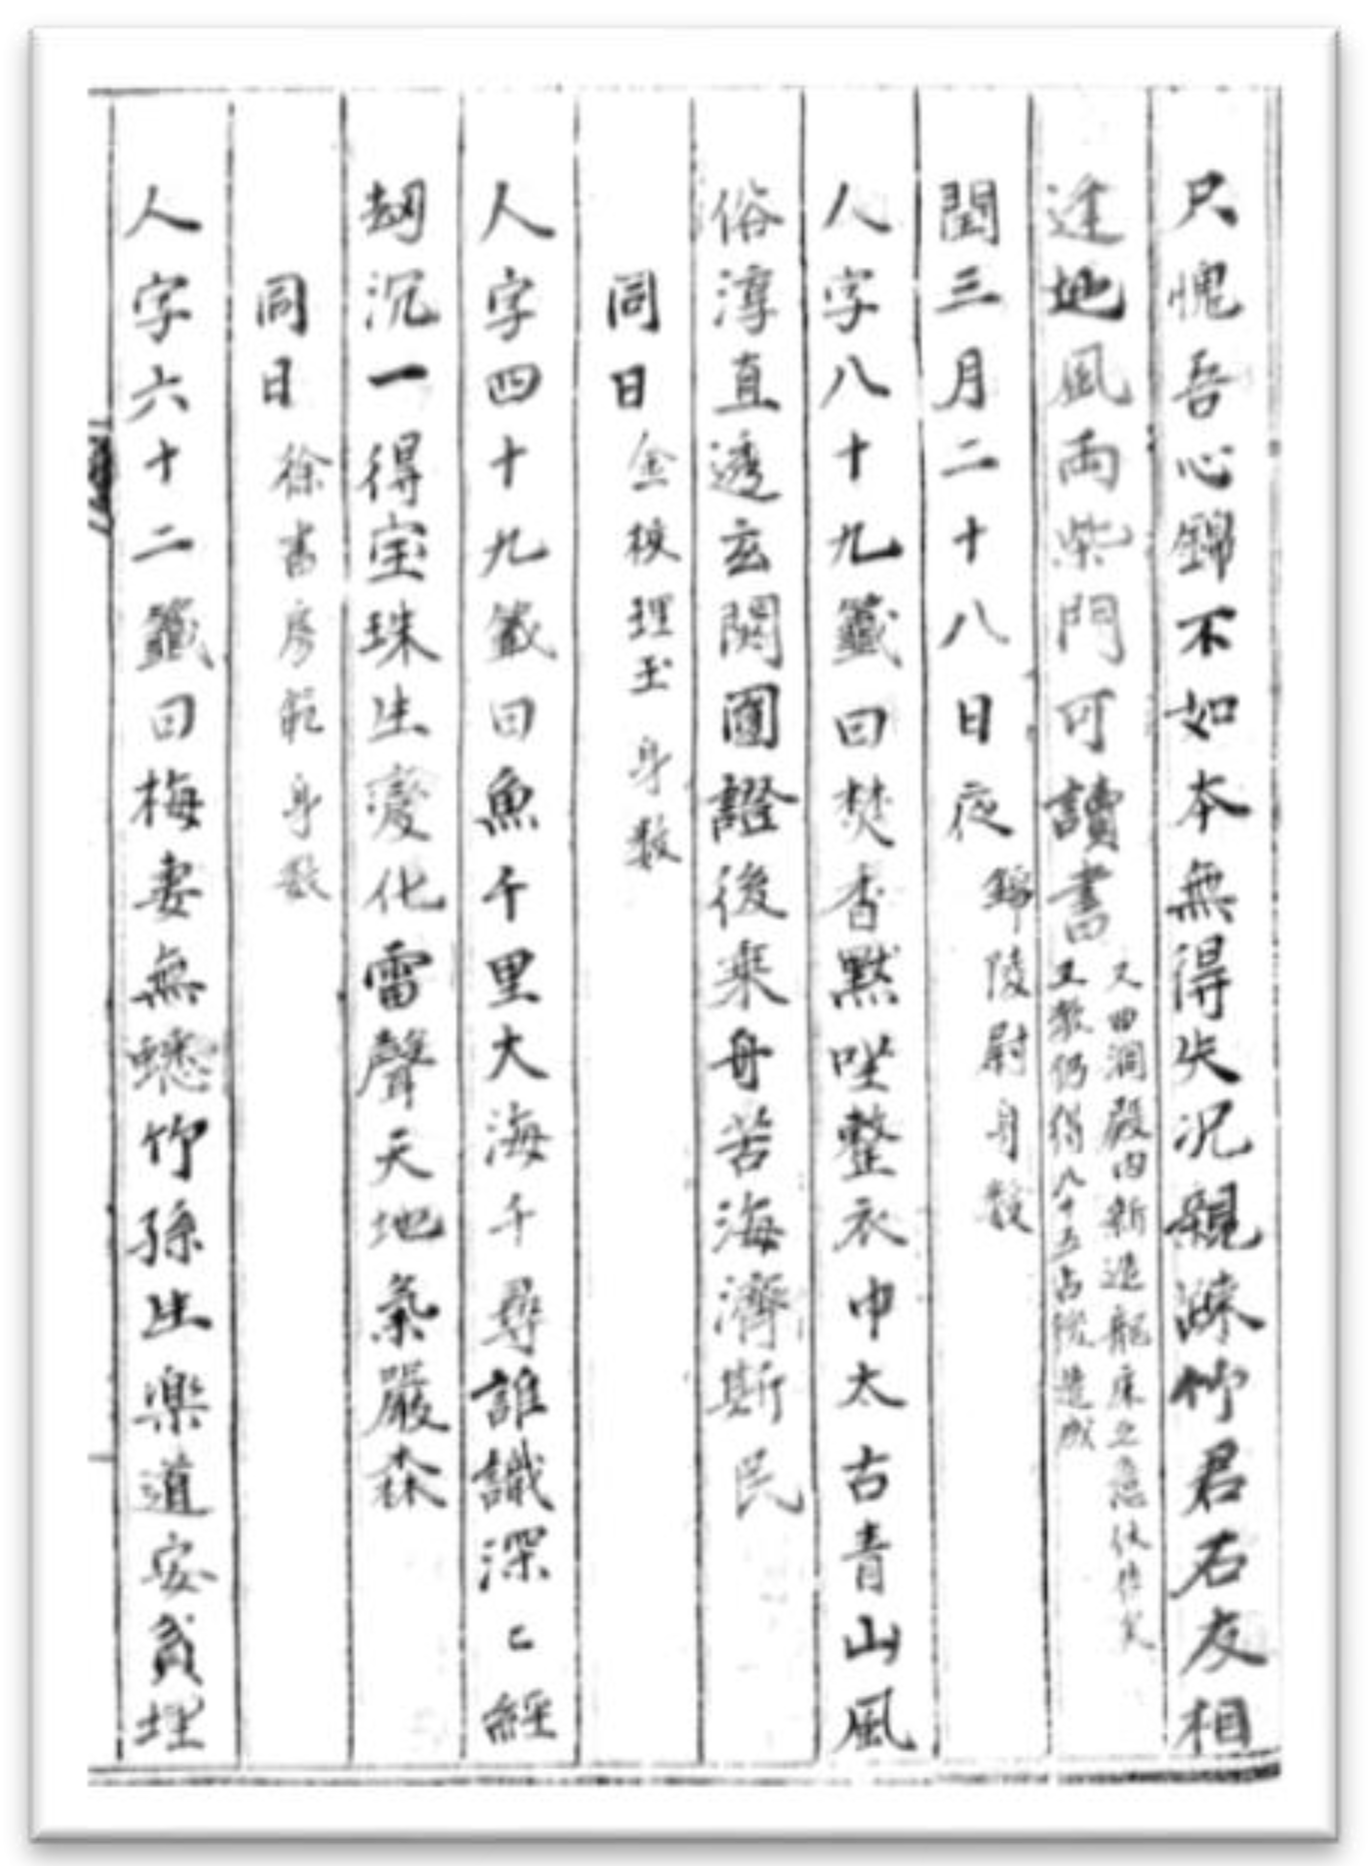 只愧吾心錦不如本無得失况親踈竹君石友相
逢地風雨柴門可讀書又田洞殿內新造龍床之意依作矣
又教仍得八十五占後造成
閏三月二十八日夜錦陵尉身數
人字八十九籤曰焚香默唑整衣巾太古青山風
俗淳直透玄関圓證後乘舟苦海濟斯民
同日金校理玉身數
人字四十九籤曰魚千里大海千尋誰識深〻經
刼沉一得宝珠生變化雷聲天地氣嚴森
同日徐書房身數
人字六十二籤曰梅妻無蟋竹孫生樂道安貧埋